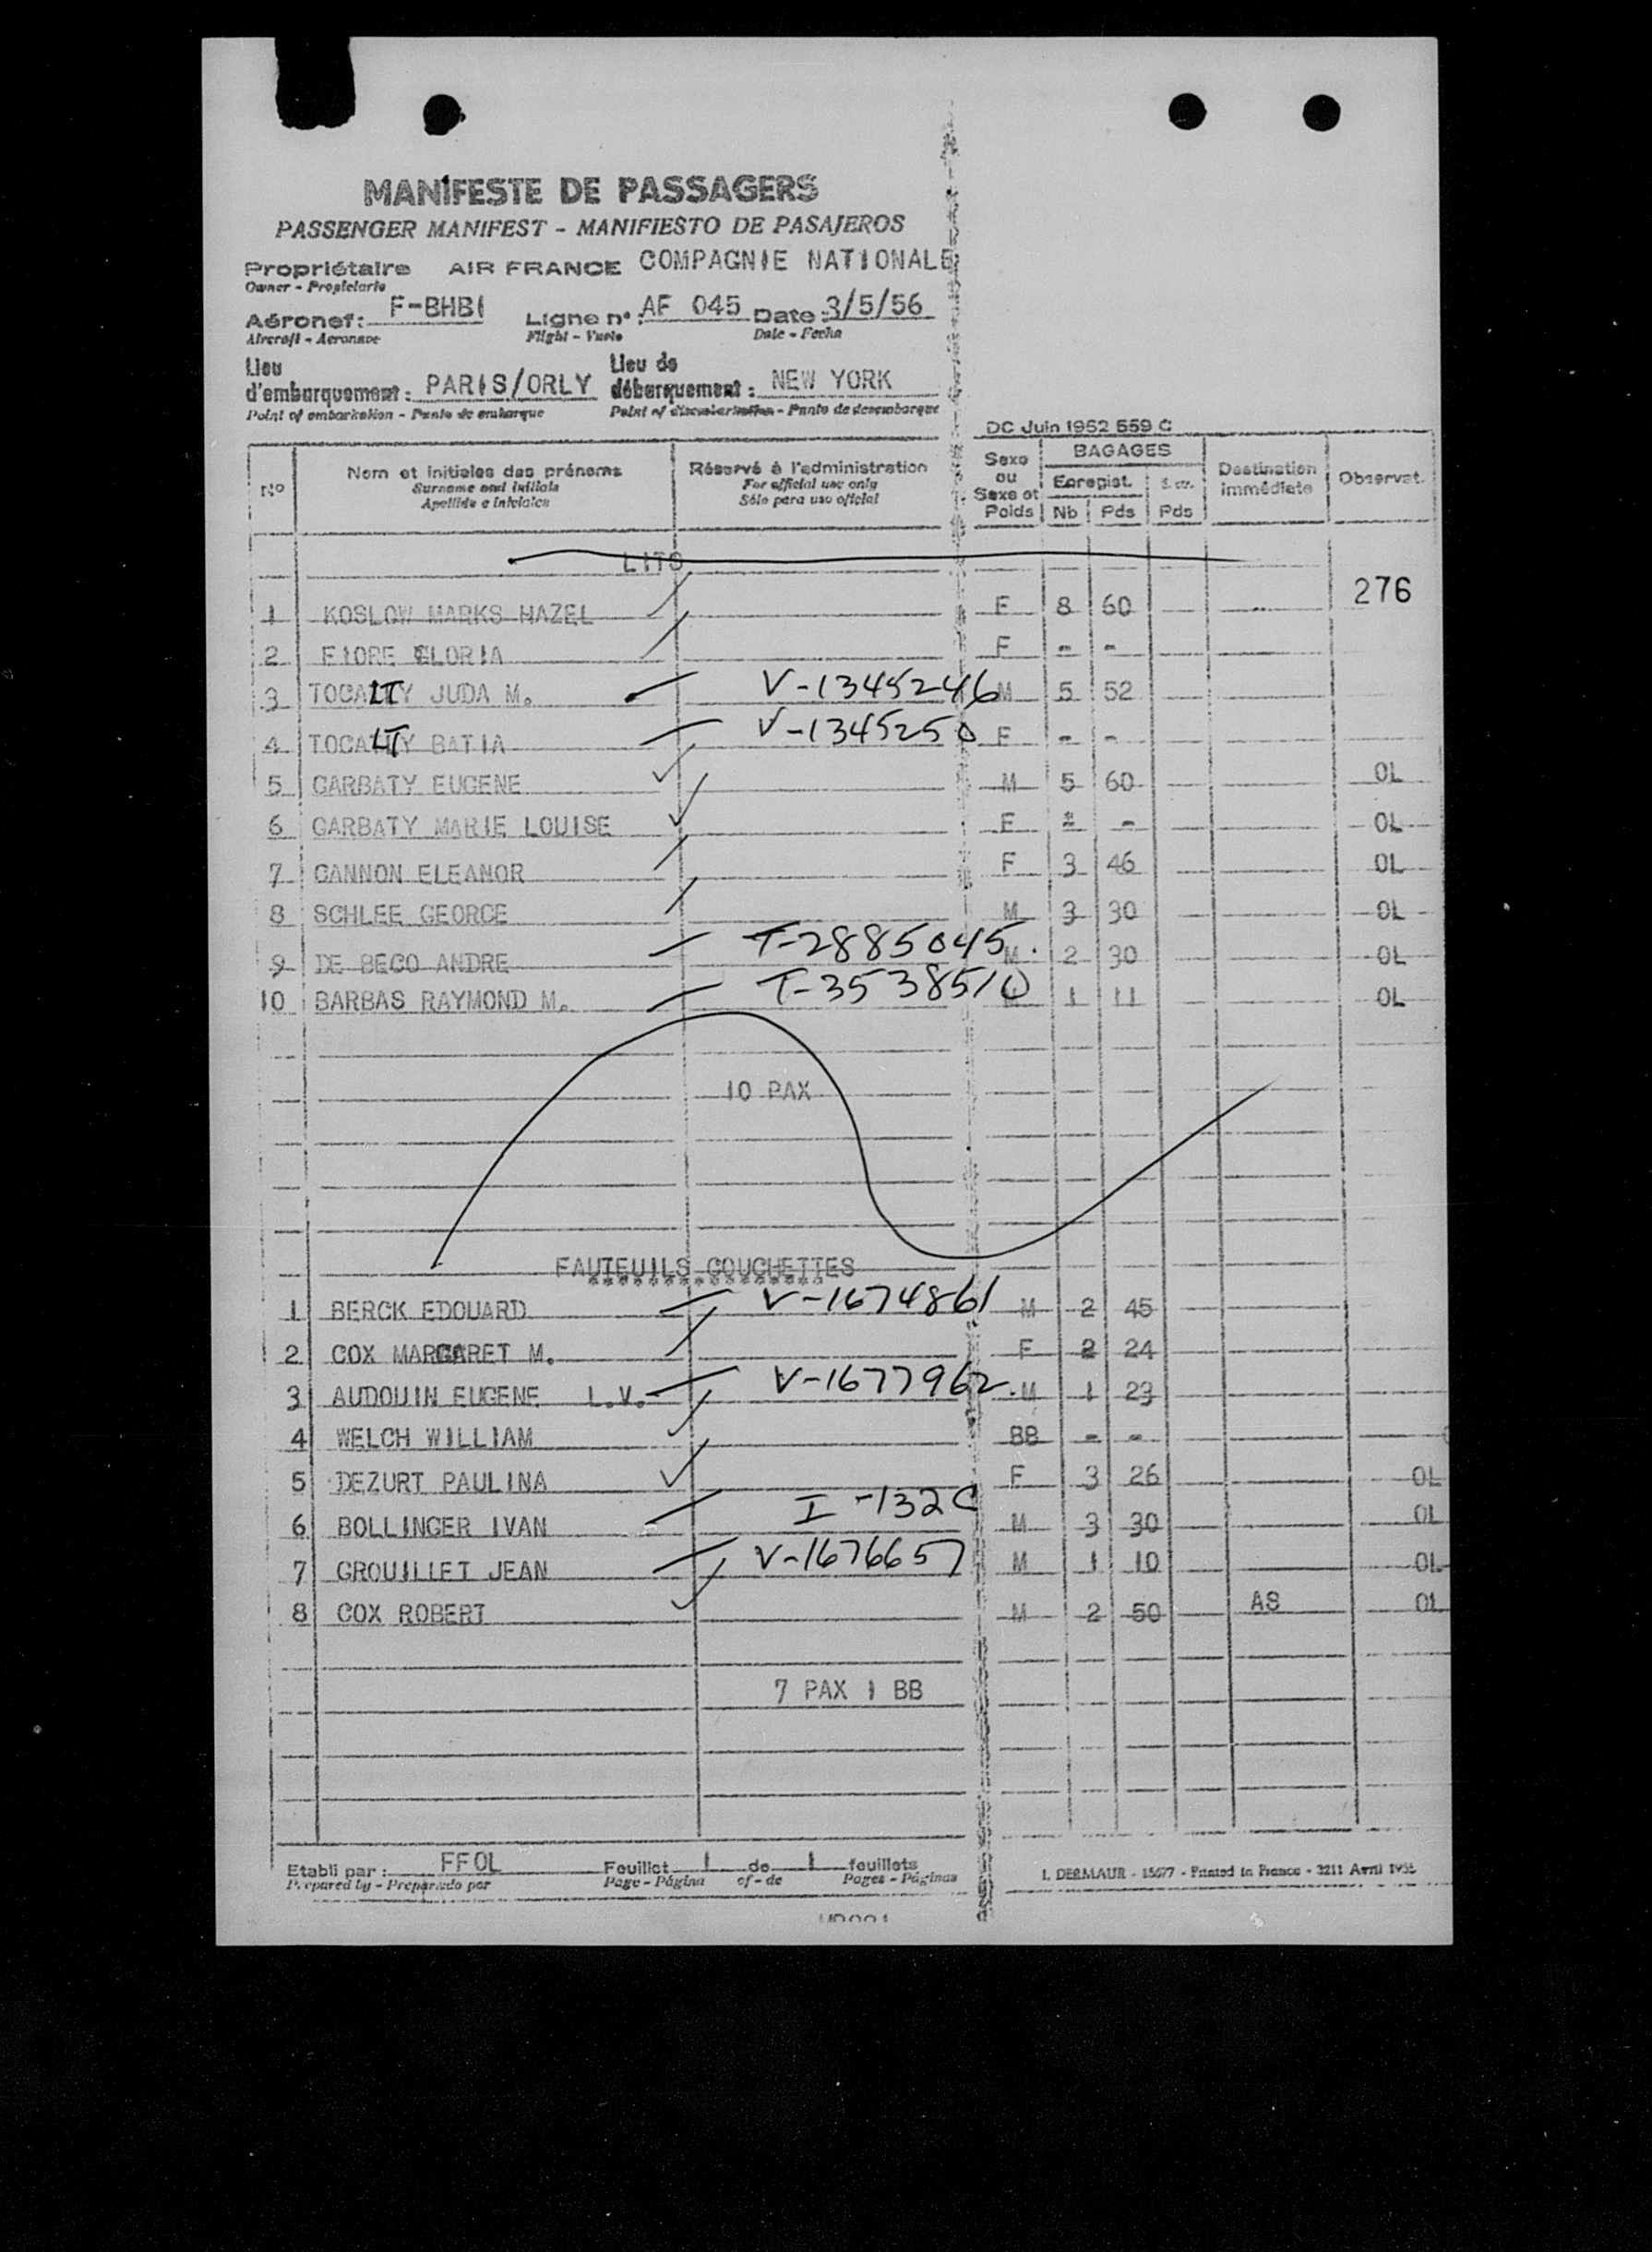 MANIFESTE DE PASSAGERS
PASSENGER MANIFEST - MANIFIESTO DE PASAJEROS
Propriétaire AIR FRANCE COMPAGNIE NATIONALE
Owner - Propietario
Aéronef: F-BHBI Ligne n° : AF 045 Date : 3/5/56
Aircraft - Aeronave Flight - Vuelo Date - Fecha
Lieu d'embarquement : PARIS/ORLY Lieu de débarquement : NEW YORK
Point of embarkation - Punto de embarque Point of disembarkation - Punto de desembarque
DC Juin 1952 559 C
No Nom et initiales des prénoms Réservé à l'administration Sexe ou Sexe et Poids BAGAGES Destination immédiate Observat.
Surname and initials For official use only Enregist. S. ctr.
Apellido e iniciales Sólo para uso oficial Nb Pds Pds
LITS
276
1 KOSLOW MARKS HAZEL F 8 60
2 FIORE GLORIA F - -
3 TOCALTY JUDA M. V-1345246 M 5 52
4 TOCALTY BATIA V-1345250 F - -
5 GARBATY EUGENE M 5 60 OL
6 GARBATY MARIE LOUISE F - - OL
7 CANNON ELEANOR F 3 46 OL
8 SCHLEE GEORGE M 3 30 OL
9 DE BECO ANDRE T-2885045. M 2 30 OL
10 BARBAS RAYMOND M. T-3538510 M 1 11 OL
10 PAX
FAUTEUILS COUCHETTES
******************
1 BERCK EDOUARD V-1674861 M 2 45
2 COX MARGARET M. F 2 24
3 AUDOUIN EUGENE L.V. V-1677962. M 1 23
4 WELCH WILLIAM BB - -
5 DEZURT PAULINA F 3 26 OL
6 BOLLINGER IVAN I-132C M 3 30 OL
7 GROUILLET JEAN V-1676657 M 1 10 OL
8 COX ROBERT M 2 50 AS OL
7 PAX 1 BB
Etabli par : FFOL Feuillet 1 de 1 feuillets
Prepared by - Preparado por Page - Página of - de Pages - Páginas
I. DERMAUR - 15677 - Printed in France - 3211 Avril